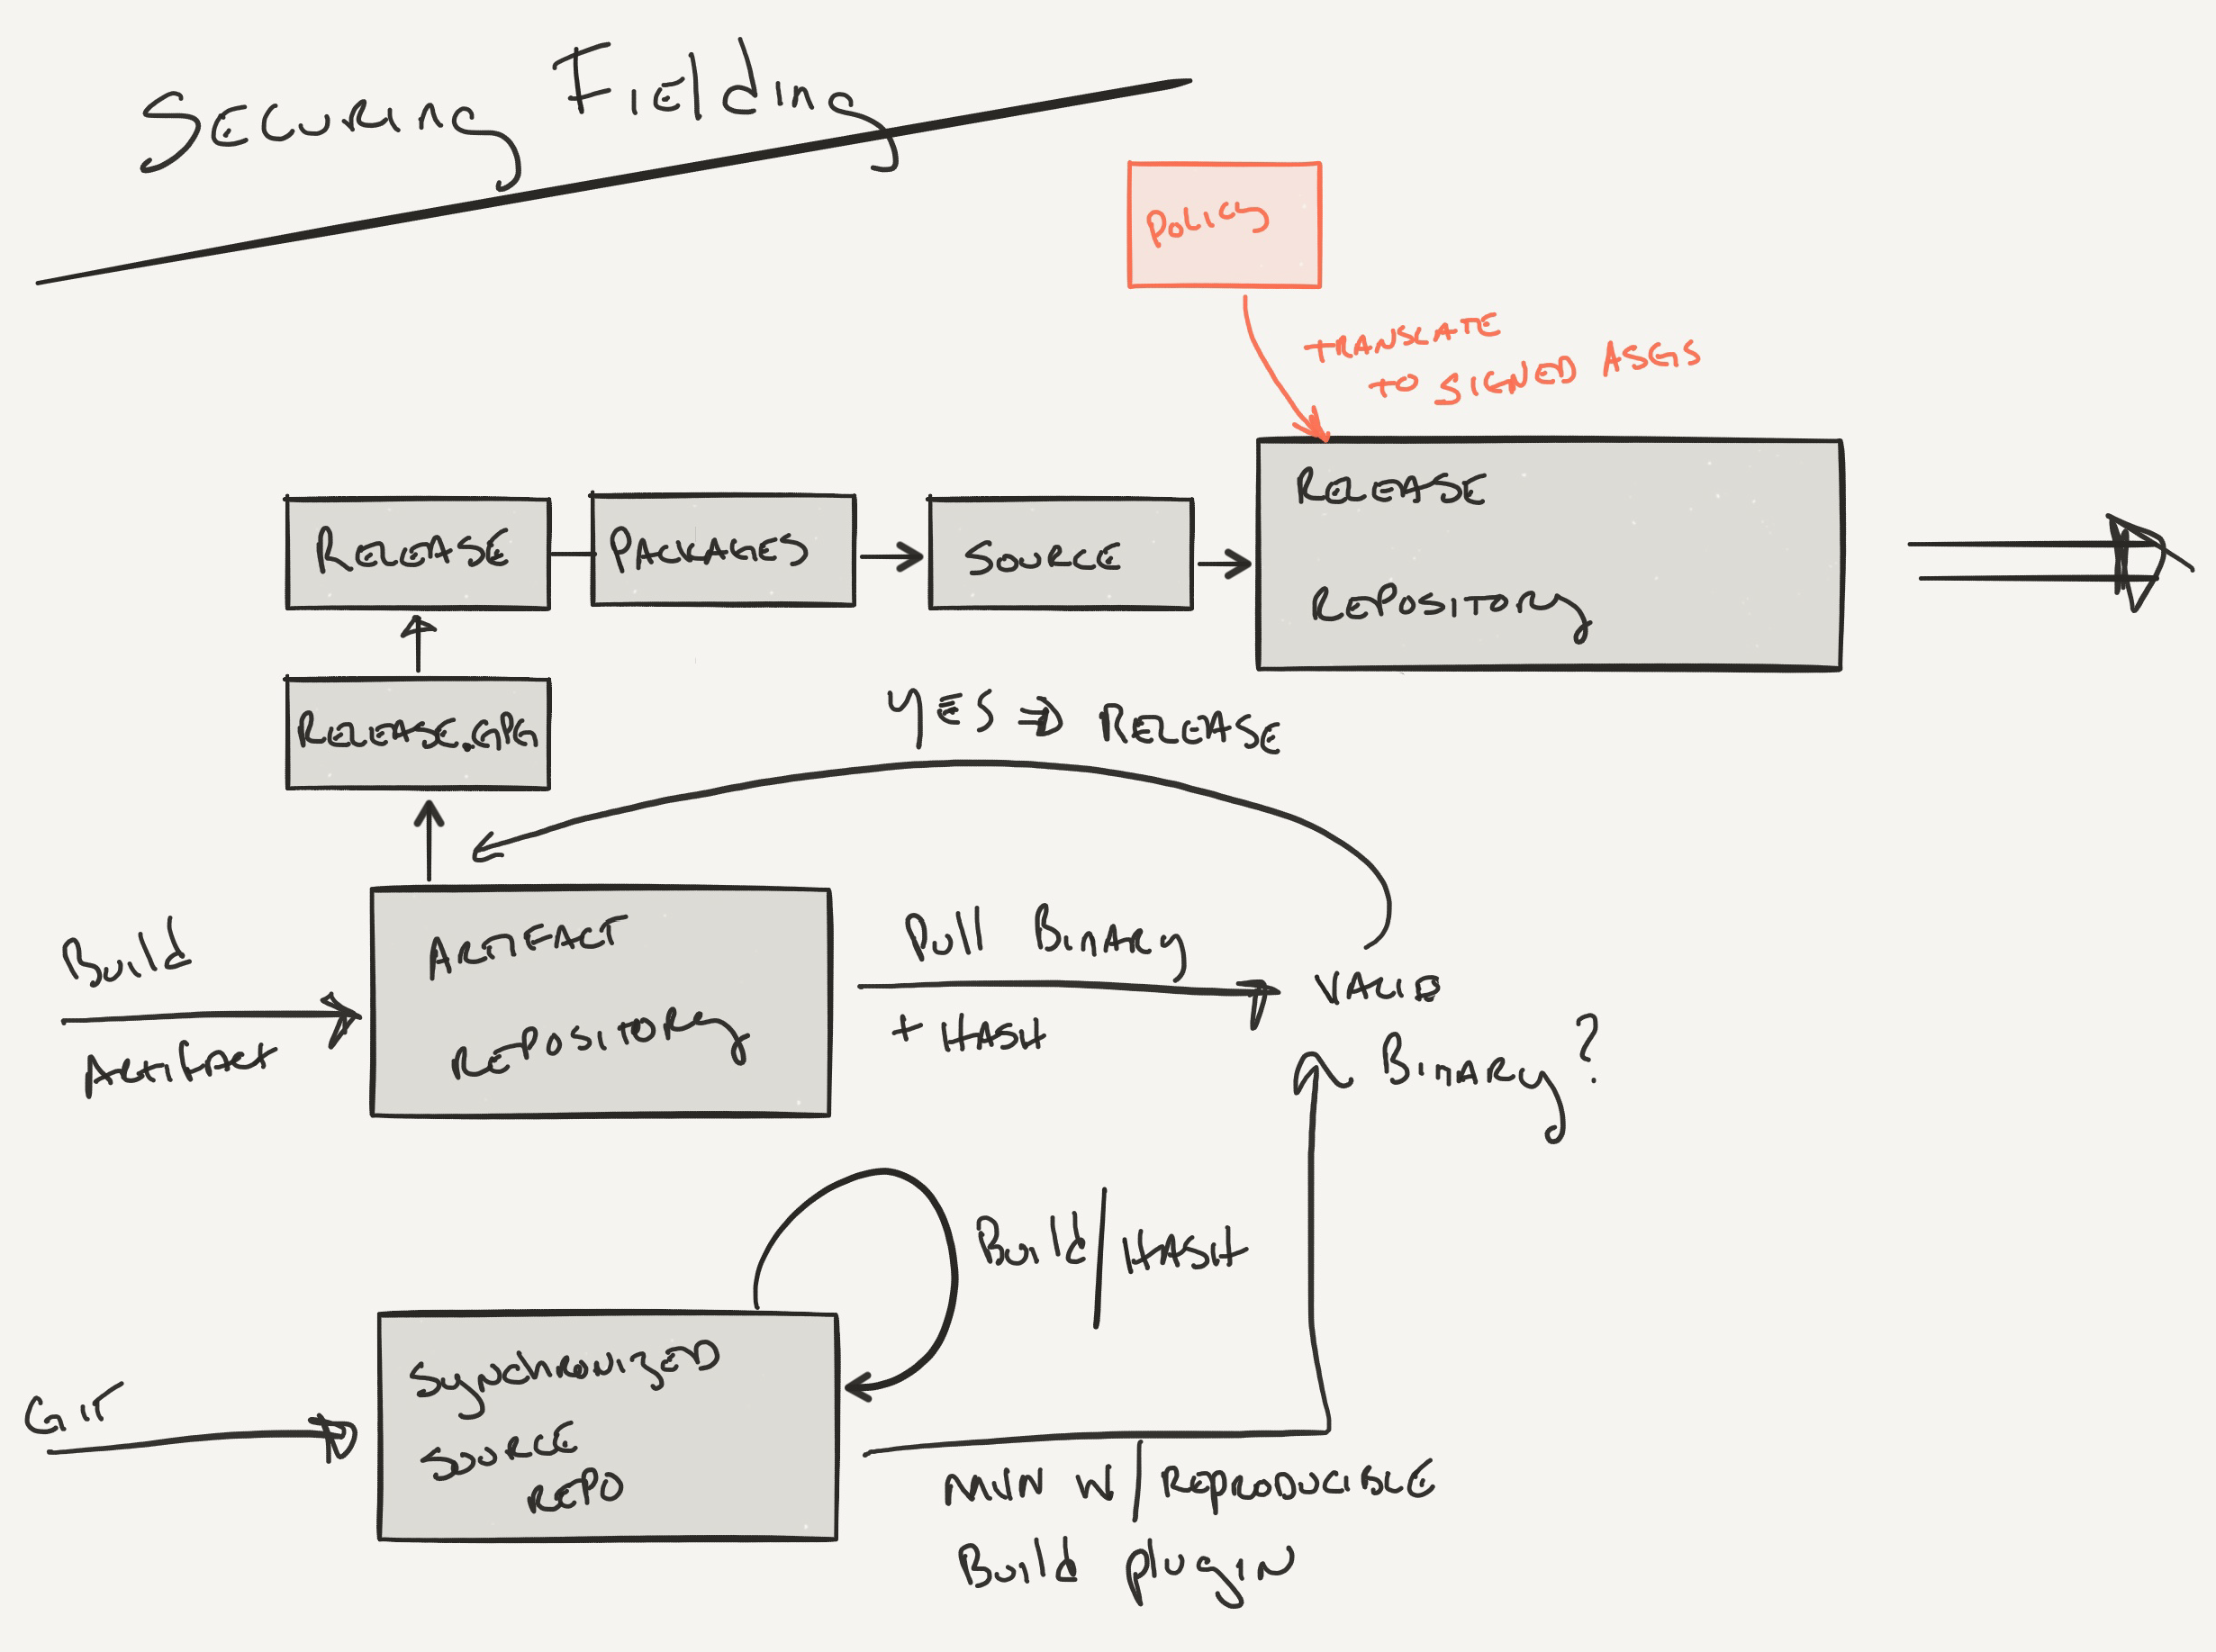 Securing Fielding
Policy
TRANSLATE
TO SIGNED ASGS
RELEASE
REPOSITORY
RELEASE
PACKAGES
SOURCE
RELEASE.GPG
YES ⇒ RELEASE
Build
Artifact
ARTIFACT
REPOSITORY
Pull Binary
+ HASH
VALID
Binary?
Build/HASH
GIT
SynchronizED
SOURCE
REPO
MVN W/REPRODUCIBLE
Build plugin